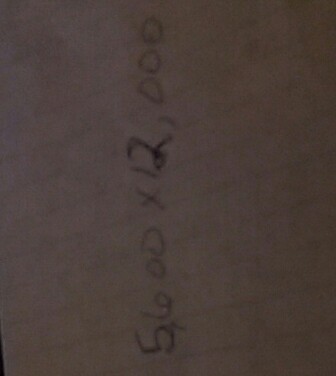 5,600 x 12,000